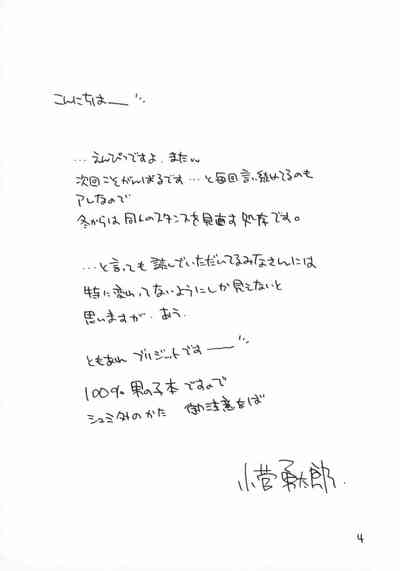 こんにちはー
…えんぴつですよ、またw
次回こそがんばるです…と毎回言い続けてるのも
アレなので
冬からは同人のスタンスを見直す処存です。
…と言っても読んでいただいてるみなさんには
特に変わってないようにしか見えないと
思いますが、あう
ともあれ ブリジットですー
100%男の子本ですので
シュミ外のかた 御注意をば
小菅勇太郎.
4